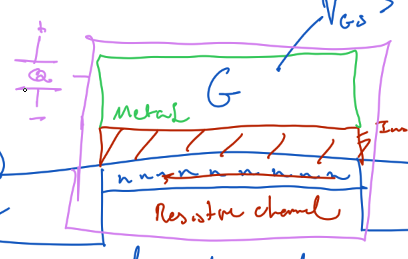 VGS >
+
Q
-
G
Metal
Ins
n n n n n n n n n
Resistive channel